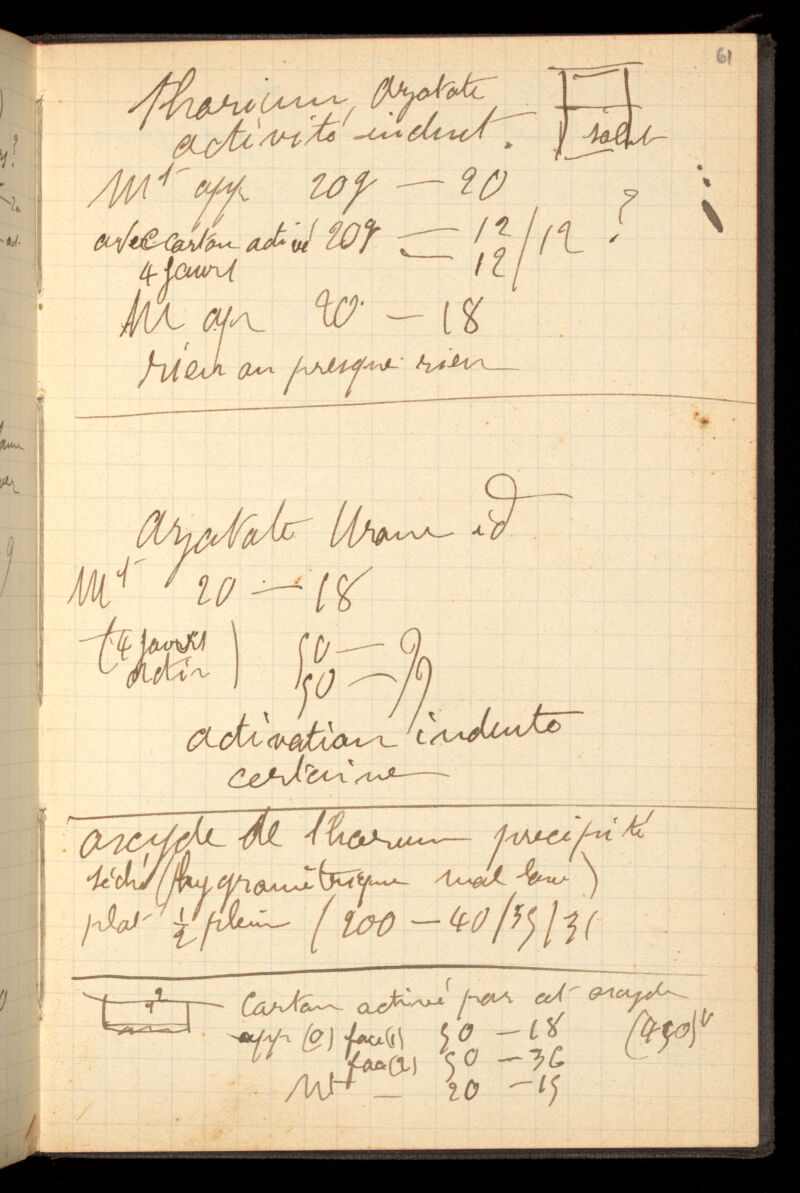 61
thorium, azotate
activité induct.
M^t app 20g — 20
avec carton activé 20g — 12 / 12 ?
4 jours — 12
M app 20 — 18
rien ou presque rien
azotate Urane id
M^t 20 — 18
(4 jours) 50 — 9
50 — 9
activation inducte
certaine
oxyde de thorium precipité
séché (hygrométrique mal lavé)
plat 1/2 plein (200 — 40/35/31
Carton activé par cet oxyde
app (0) face(1) 50 — 18 (450)^v
face(2) 50 — 36
M^t — 20 — 15